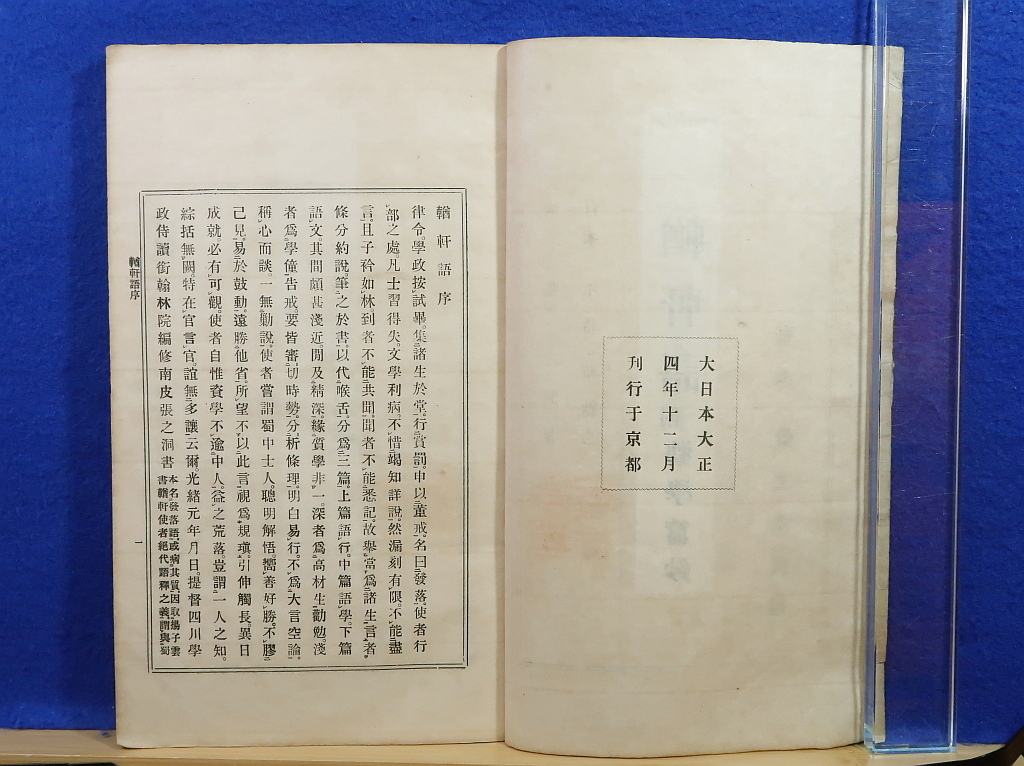 大日本大正
四年十二月
刊行于京都
輶軒語序
律令學政按試畢集諸生於堂行賞罰申以董戒名曰發落使者行
部之處凡士習得失文學利病不惜竭知詳說然漏刻有限不能盡
言且子衿如林到者不能共聞聞者不能悉記故舉當爲諸生言者
條分約說筆之於書以代喉舌分爲三篇上篇語行中篇語學下篇
語文其間頗甚淺近閒及精深緣質學非一深者爲高材生勸勉淺
者爲學僮告戒要皆審切時勢分析條理明白易行不爲大言空論
稱心而談一無勦說使者嘗謂蜀中士人聰明解悟嚮善好勝不膠
己見易於鼓動遠勝他省所望不以此言視爲規瑱引伸觸長異日
成就必有可觀使者自惟資學不逾中人益之荒落豈謂一人之知
綜括無闕特在官言官誼無多讓云爾光緒元年月日提督四川學
政侍讀銜翰林院編修南皮張之洞書
本名發落語或病其質因取揚子雲
書輶軒使者絕代語釋之義謂與蜀
輶軒語序
一